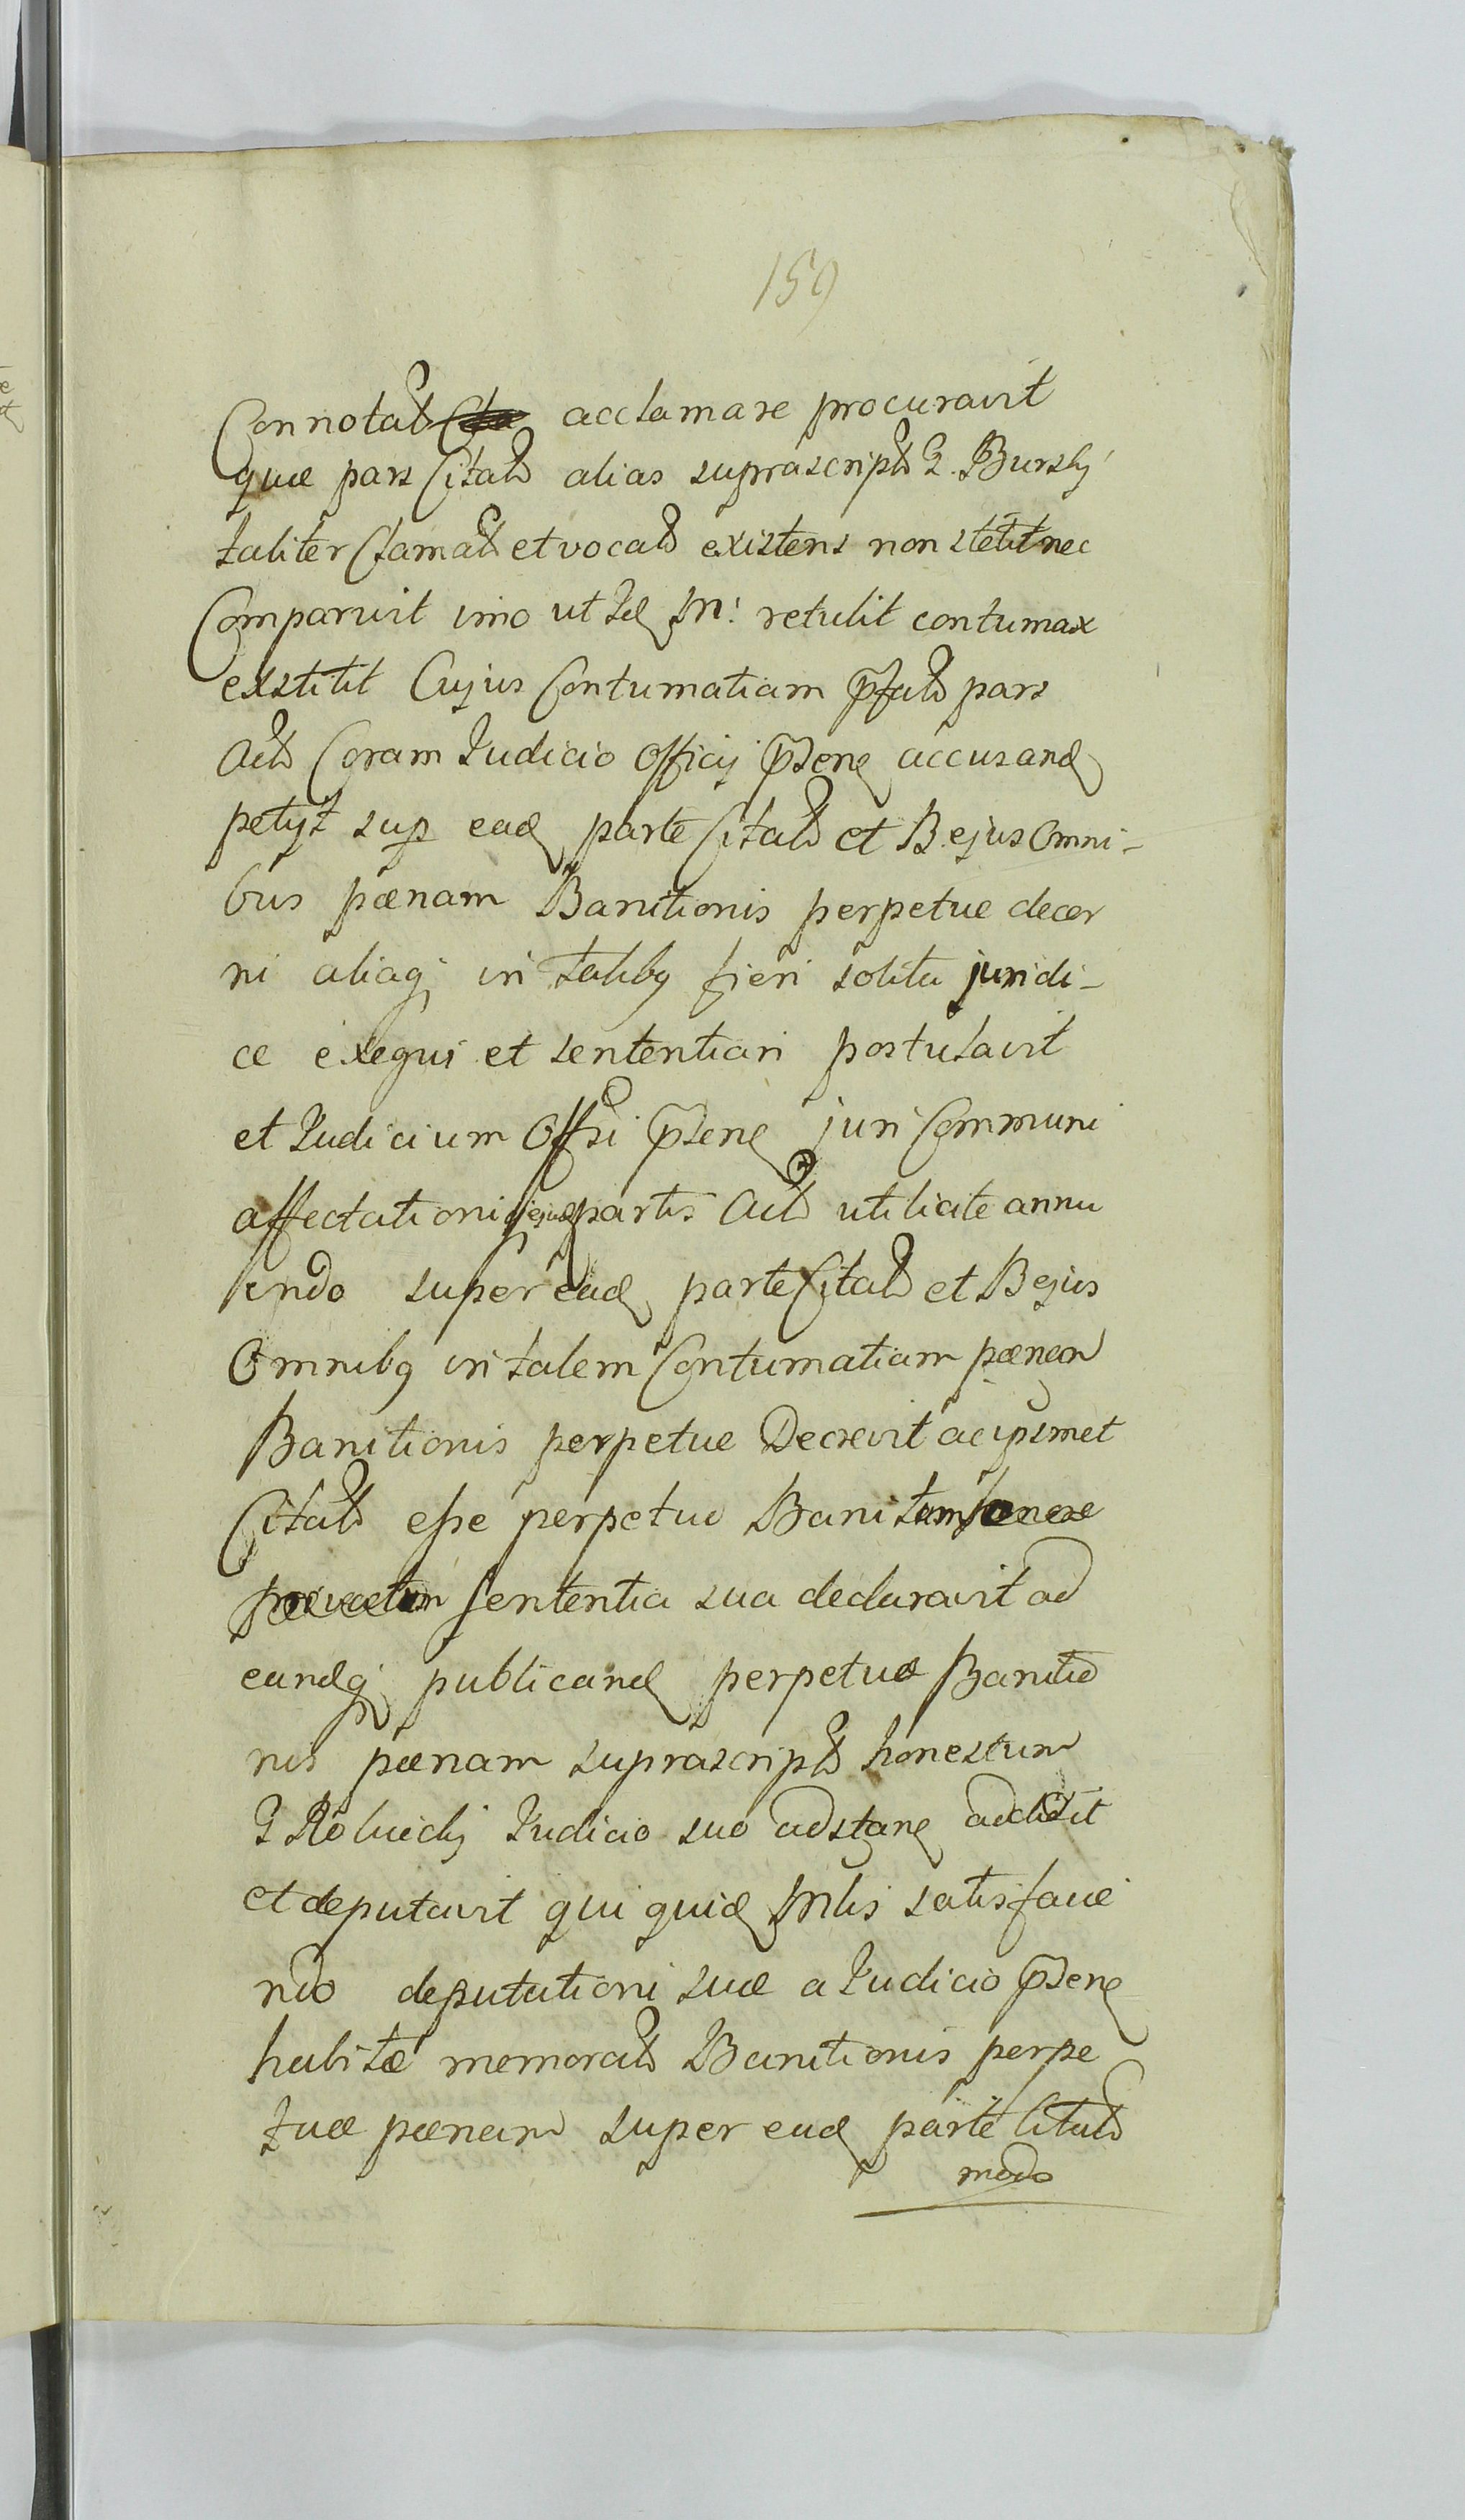 159
Connotat acclamare procuravit
quæ pars Citat alias suprascript G. Bursky
taliter Clamat et vocat existens non stetit nec
Comparuit imo ut Id M: retulit contumax
exstitit Cujus Contumatiam pfat pars
Act Coram Judicio Officij pnt accusand
petijt sup ead parte Citat et B. ejus Omni-
bus pænam Banitionis perpetuæ decer
ni aliaq in talibq fieri solita juridi-
ce exequi et sententiari postulavit
et Judicium Offi pnt juri Communi
affectationi partis Act annu
endo super ead parte Citat et B ejus
Omnibq in talem Contumatiam pænam
Banitionis perpetuæ Decrevit ac ipsmet
Citat esse perpetuo Banitum
Sententia sua declaravit ad
eandq publicand perpetuæ Banitio
nis pænam suprascript honestum
G Judicio suo adstan addidit
et deputavit qui quid Mlis satisfacie
ndo deputationi suæ a Judicio pnt
habitæ memorat Banitionis perpe
tuæ pænam super ead parte Citat
modo